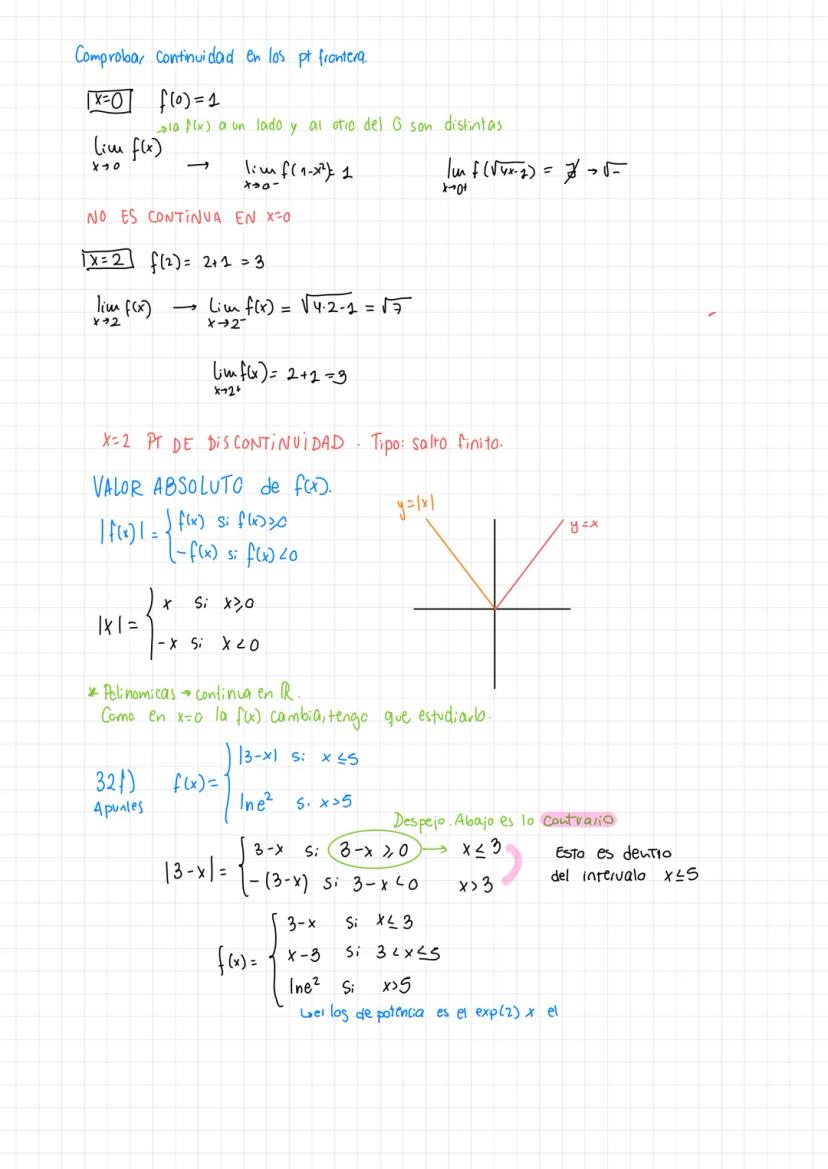 Comprobar continuidad en los pt frontera.
x=0 f(0)=1
→la f(x) a un lado y al otro del 0 son distintas
lim f(x) x→0 → lim f(1-x²)= 1 x→0⁻ lim f(√4x-1) = ∄ → √-  x→0⁺
NO ES CONTINUA EN x=0
x=2 f(2)= 2+1 = 3
lim f(x) x→2 → Lim f(x) = √4·2-1 = √7 x→2⁻
lim f(x)= 2+1 =3 x→2⁺
x=2 PT DE DISCONTINUIDAD. Tipo: salto finito.
VALOR ABSOLUTO de f(x).
y=|x|
y=x
|f(x)| = { f(x) si f(x)≥0
-f(x) si f(x)<0
|x| = { x si x≥0
-x si x<0
* Polinomicas → continua en ℝ.
Como en x=0 la f(x) cambia, tengo que estudiarlo.
32f) f(x)= { |3-x| si x≤5
Apuntes
lne² si x>5
Despejo. Abajo es lo contrario
|3-x| = { 3-x si 3-x≥0 → x≤3
-(3-x) si 3-x<0 x>3
Esto es dentro
del intervalo x≤5
f(x)= { 3-x si x≤3
x-3 si 3<x≤5
lne² si x>5
↳el log de potencia es el exp(2) x el